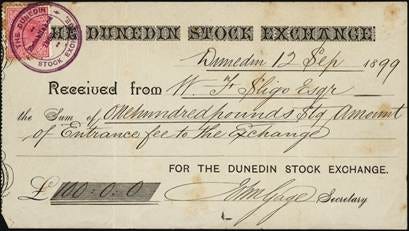 THE DUNEDIN STOCK EXCHANGE.
THE DUNEDIN STOCK EXCHANGE
Dunedin 12 Sep 1899
Received from W. F. Sligo Esqr
the Sum of One hundred pounds Stg Amount
of Entrance fee to the Exchange
FOR THE DUNEDIN STOCK EXCHANGE.
£100:0:0
Secretary